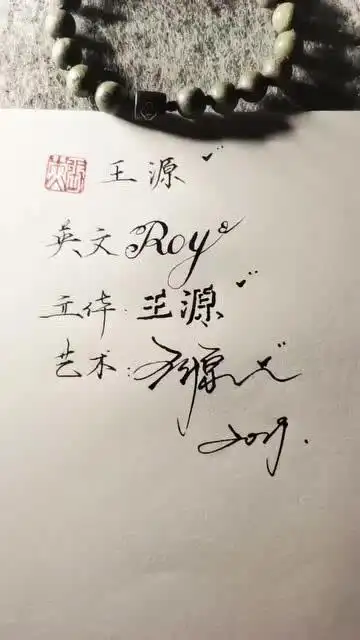 王源
英文 Roy
立体：王源
艺术：王源
2019.